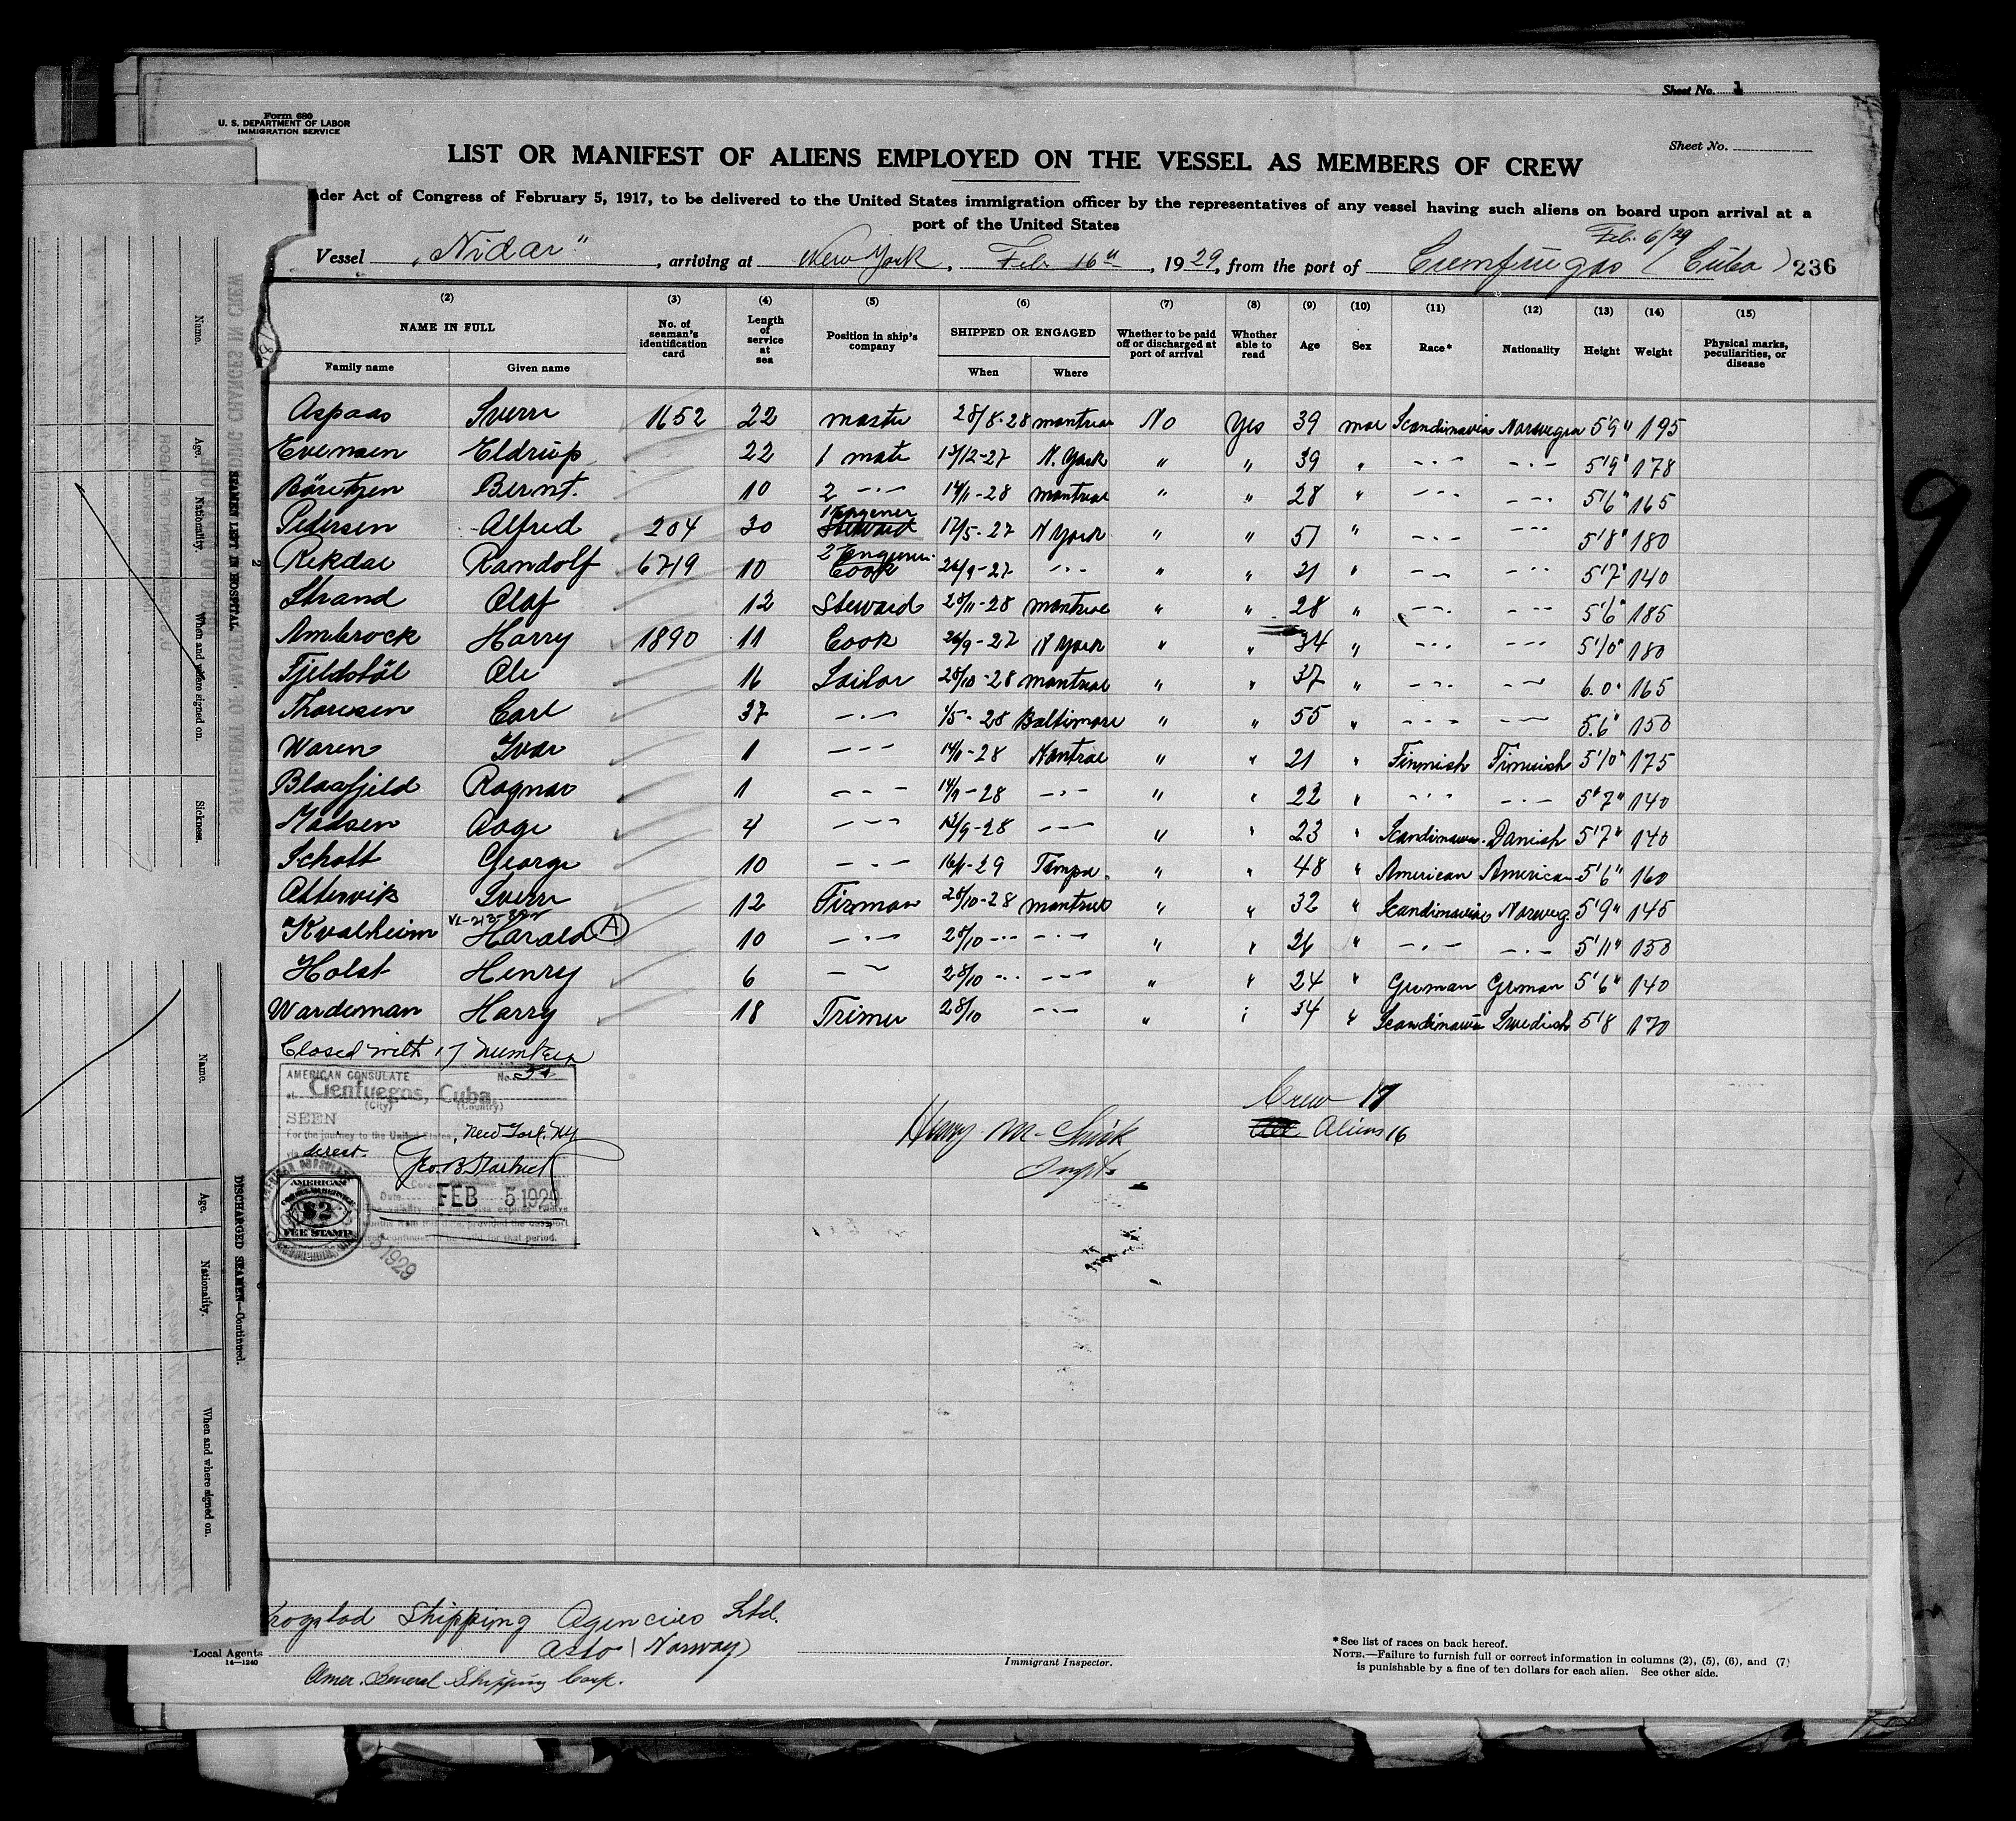 Sheet No. 1
Form 680
U. S. DEPARTMENT OF LABOR
IMMIGRATION SERVICE
Sheet No.
LIST OR MANIFEST OF ALIENS EMPLOYED ON THE VESSEL AS MEMBERS OF CREW
nder Act of Congress of February 5, 1917, to be delivered to the United States immigration officer by the representatives of any vessel having such aliens on board upon arrival at a
port of the United States
Feb. 6/29
Vessel „Nidar", arriving at New York, Feb 16th, 1929, from the port of Cienfuegos (Cuba) 236
(2) (3) (4) (5) (6) (7) (8) (9) (10) (11) (12) (13) (14) (15)
NAME IN FULL No. of seaman's identification card Length of service at sea Position in ship's company SHIPPED OR ENGAGED Whether to be paid off or discharged at port of arrival Whether able to read Age Sex Race* Nationality Height Weight Physical marks, peculiarities, or disease
Family name Given name When Where
Aspaas Sverre 1652 22 master 28/8-28 Montreal No Yes 39 mal Scandinavian Norwegian 5'9" 195
Evensen Eldrup 22 1 mate 13/12-27 N. York " " 39 " -·- -·- 5'9" 178
Böretzen Bernt. 10 2 -·- 14/11-28 Montreal " " 28 " --- --- 5'6" 165
1 Engener
Pedersen Alfred 204 30 Steward 17/5-27 N York " " 51 " -·- --- 5'8" 180
2 Engener
Rekdal Randolf 6719 10 Cook 26/9-27 -·- " " 31 " -- --- 5'7" 140
Strand Olaf 12 Steward 28/11-28 Montreal " " 28 " --- --- 5'6" 185
Ambrock Harry 1890 11 Cook 26/9-27 N York " " 34 " --- --- 5'10" 180
Fjeldstöl Ole 16 Sailor 28/10-28 Montreal " " 37 " --- --- 6.0" 165
Thoresen Carl 37 -·- 1/5-28 Baltimore " " 55 " --- --- 5.6" 150
Waren Ivar 1 --- 14/11-28 Montreal " " 21 " Finnish Finnish 5'10" 175
Blaafjeld Ragnar 1 --- 14/9-28 -·- " " 22 " --- -·- 5'7" 140
Madsen Aage 4 --- 13/9-28 --- " " 23 " Scandinavian Danish 5'7" 140
Schott George 10 -·- 16/1-29 Tampa. " " 48 " American American 5'6" 160
Attervik Sverre 12 Firman 28/10-28 Montreal " " 32 " Scandinavian Norweg. 5'9" 145
Kvalheim Harald (A) 10 -·- 28/10 --- -·- " " 26 " -·- -·- 5'11" 150
Holst Henry 6 -- 28/10 --- --- " " 24 " German German 5'6" 140
Wardeman Harry 18 Trimer 28/10 -·- " " 34 " Scandinavian Swedish 5'8 170
Closed with 17 numbers
AMERICAN CONSULATE No.
at Cienfuegos, Cuba.
(City) (Country)
SEEN
For the journey to the United States, New York, NY
via direct.
Date FEB 5 1929
months from this date, provided the passport
continues to be valid for that period.
AMERICAN
CONSULAR SERVICE
$2
FEE STAMP
5 1929
Crew 17
Aliens 16
rogstad Shipping Agencies Ltd.
Oslo (Norway)
*Local Agents
14—1240
Amer. General Shipping Corp.
Immigrant Inspector.
*See list of races on back hereof.
NOTE.—Failure to furnish full or correct information in columns (2), (5), (6), and (7)
is punishable by a fine of ten dollars for each alien. See other side.
STATEMENT OF MASTER REGARDING CHANGES IN CREW
SEAMEN LEFT IN HOSPITAL
2
Name. Age. Nationality. When and where signed on. Sickness.
DISCHARGED SEAMEN—Continued.
Name. Age. Nationality. When and where signed on.
9